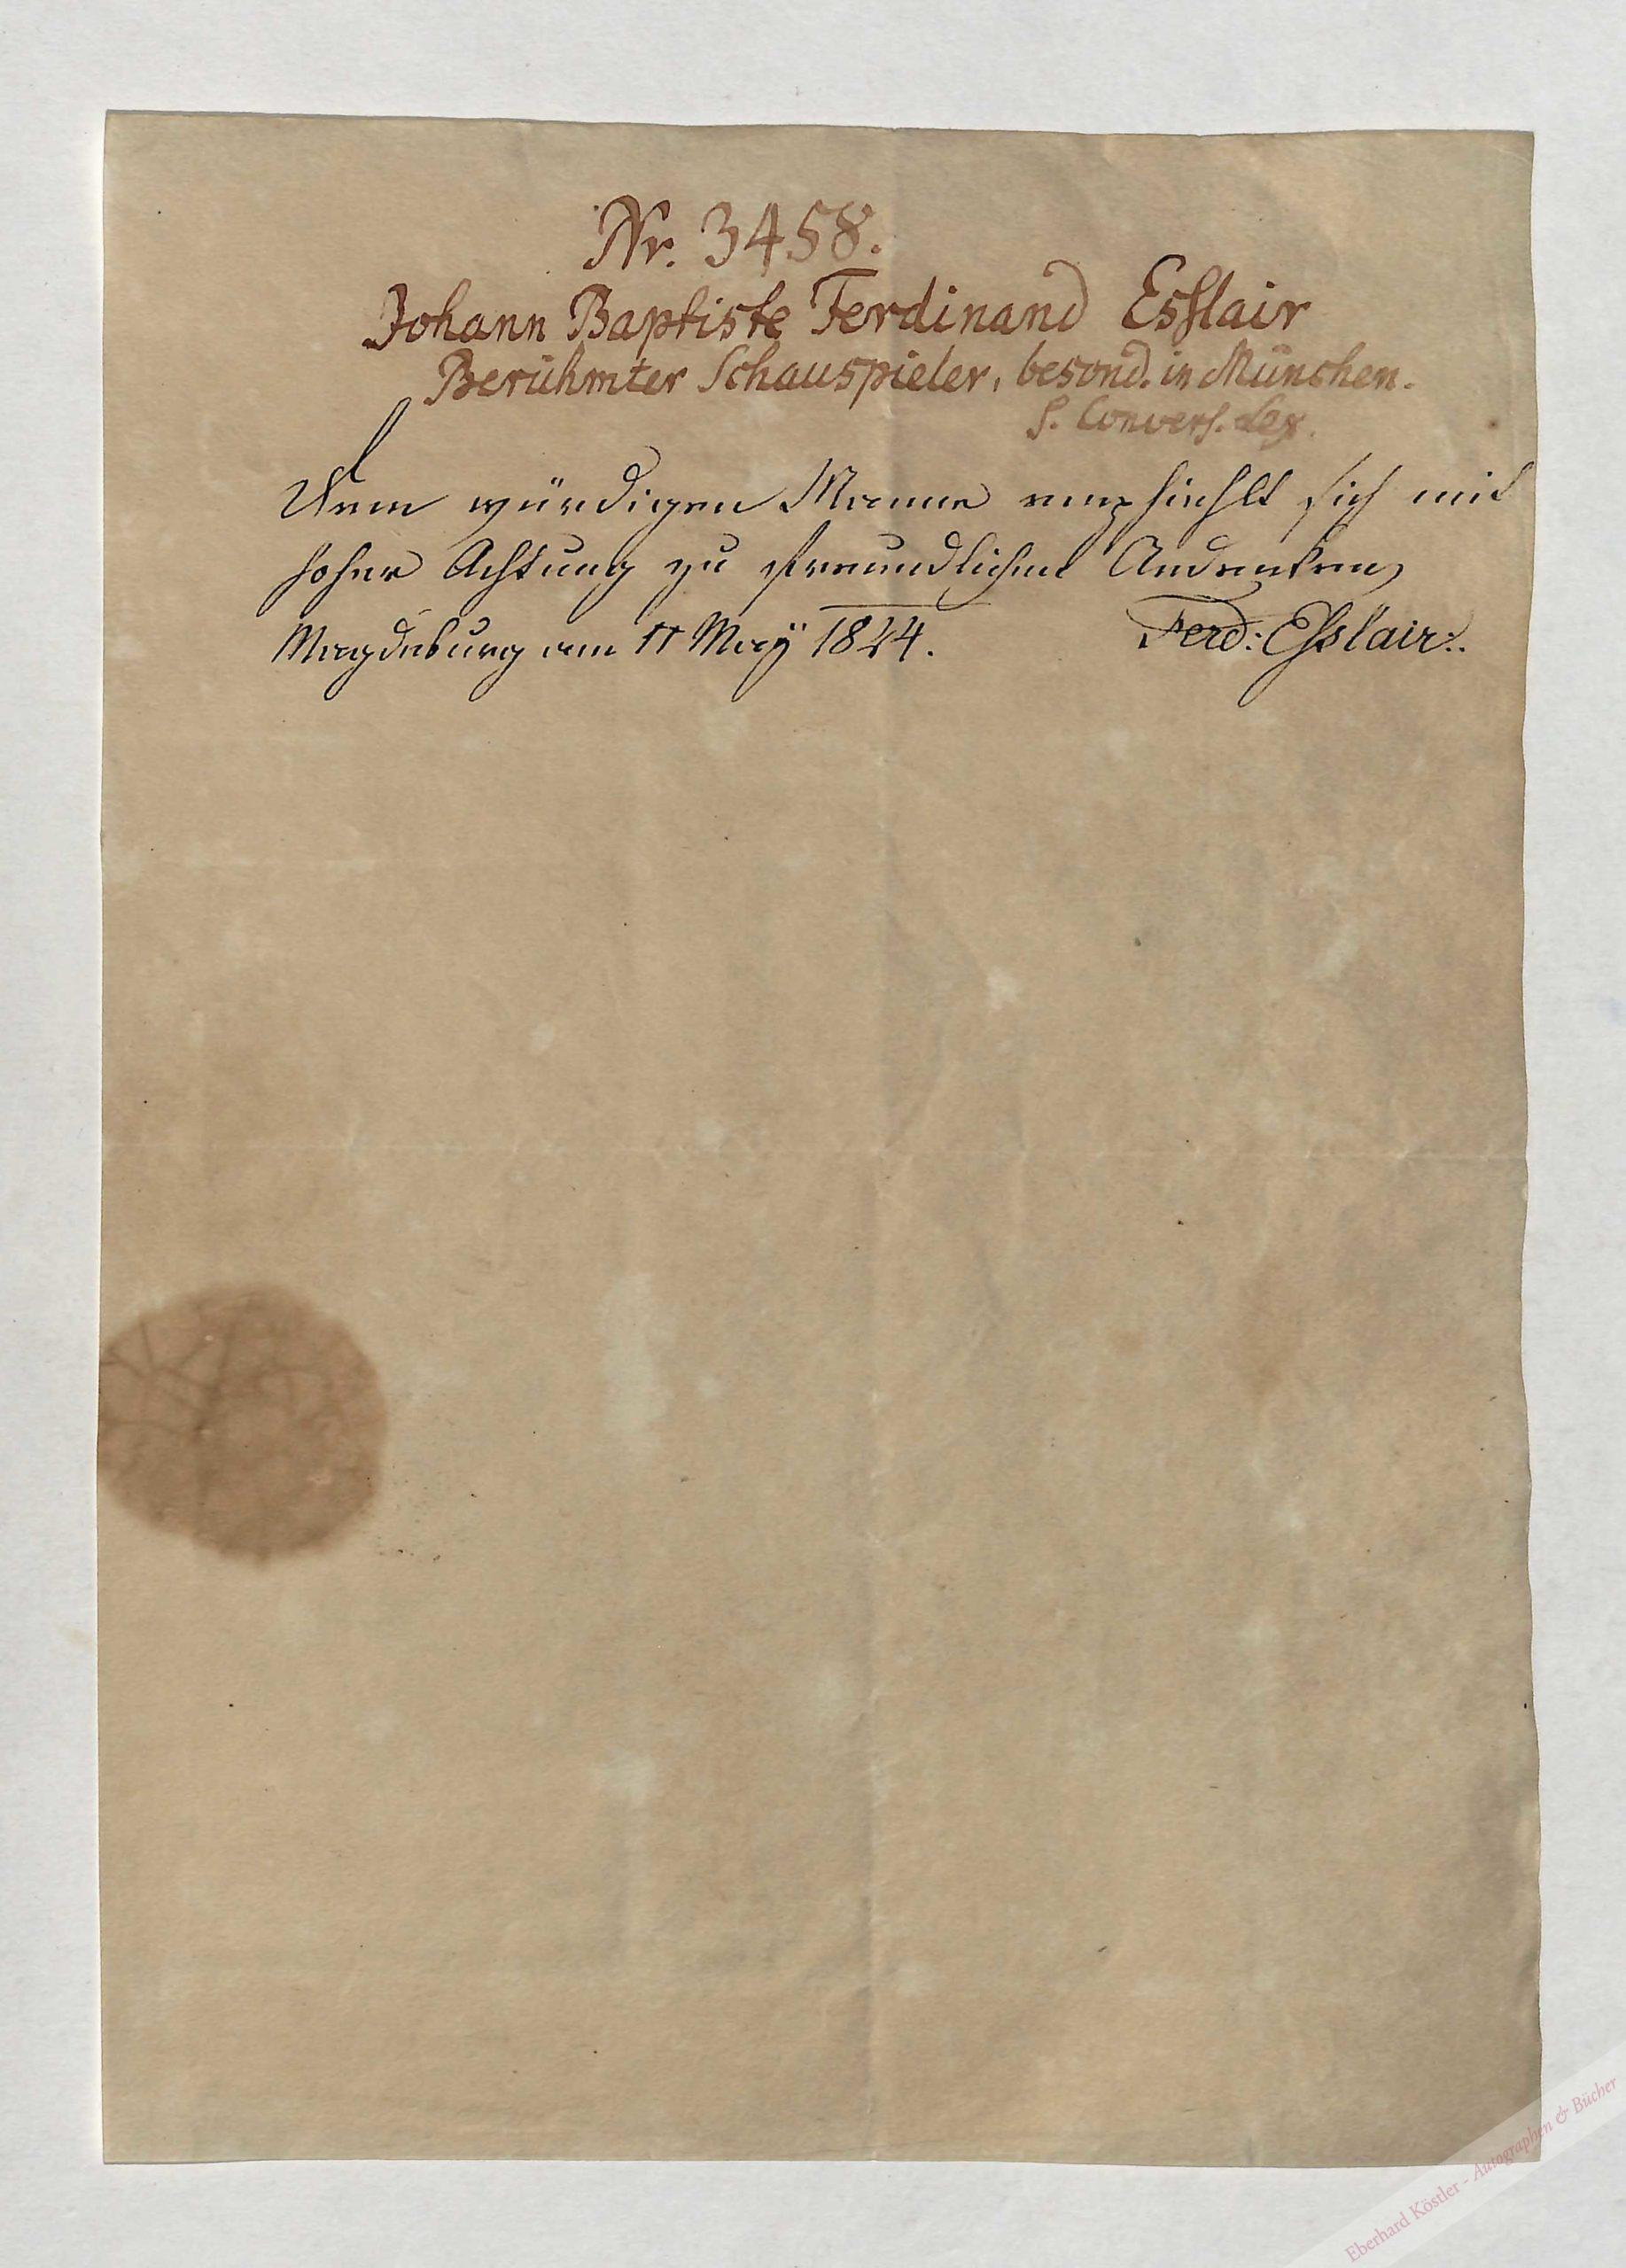 Nr. 3458.
Johann Baptiste Ferdinand Esslair
Berühmter Schauspieler, besond. in München.
S. Convers. Lex.
Dem würdigen Manne empfiehlt sich mit
hoher Achtung zu freundlichem Andenken
Magdeburg am 17 May 1824. Ferd: Esslair:.
Eberhard Köstler - Autographen & Bücher